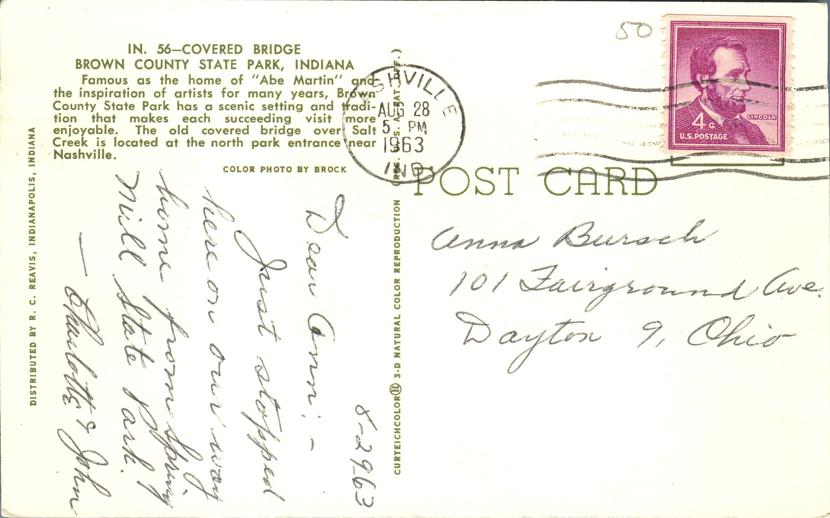 IN. 56—COVERED BRIDGE
BROWN COUNTY STATE PARK, INDIANA
Famous as the home of "Abe Martin" and
the inspiration of artists for many years, Brown
County State Park has a scenic setting and tradi-
tion that makes each succeeding visit more
enjoyable. The old covered bridge over Salt
Creek is located at the north park entrance near
Nashville.
COLOR PHOTO BY BROCK
DISTRIBUTED BY R. C. REAVIS, INDIANAPOLIS, INDIANA
8-29-63
Dear Ann:-
Just stopped
here on our way
home from Spring
Mill State Park.
— Charlotte & John
CURTEICHCOLOR® 3-D NATURAL COLOR REPRODUCTION
NASHVILLE
AUG 28
5 PM
1963
IND.
50
LINCOLN
4¢
U.S. POSTAGE
POST CARD
Anna Bursch
101 Fairground Ave.
Dayton 9, Ohio